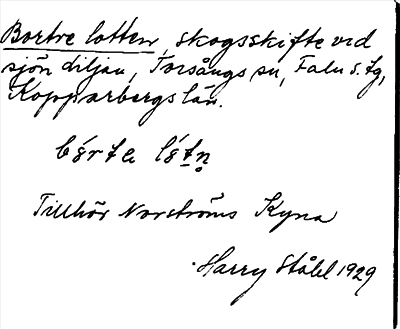 Bortre lotten, skogsskifte vid
sjön diljan, Torsångs sn, Falu s. tg,
Kopparbergs län.
Tillhör Norströms Kyna
Harry Ståhl 1929